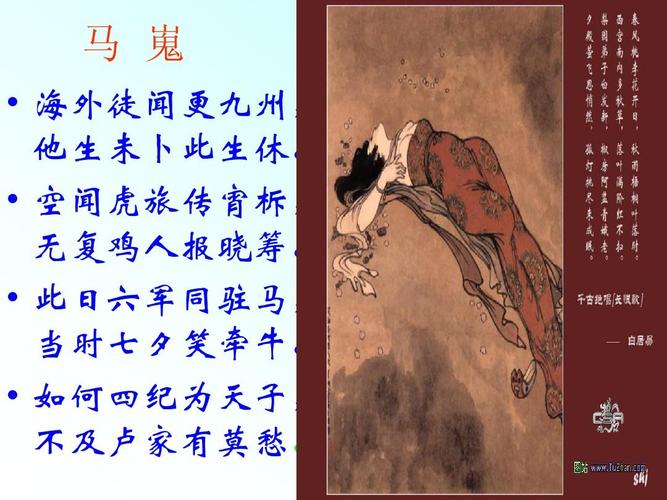 马 嵬
• 海外徒闻更九州，
他生未卜此生休。
• 空闻虎旅传宵柝，
无复鸡人报晓筹。
• 此日六军同驻马，
当时七夕笑牵牛。
• 如何四纪为天子，
不及卢家有莫愁。
春风桃李花开日，秋雨梧桐叶落时。
西宫南内多秋草，落叶满阶红不扫。
梨园弟子白发新，椒房阿监青娥老。
夕殿萤飞思悄然，孤灯挑尽未成眠。
千古绝唱[长恨歌]
—— 白居易
图站 www.Tu2oan.com
skj